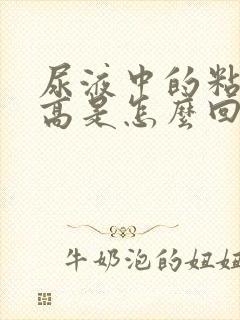 尿液中的粘
高是怎麼回
牛奶泡的妞妞